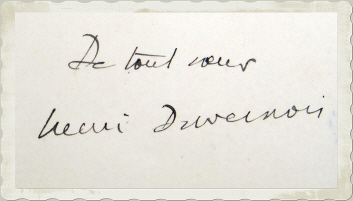 De tout cœur
Henri Duvernois